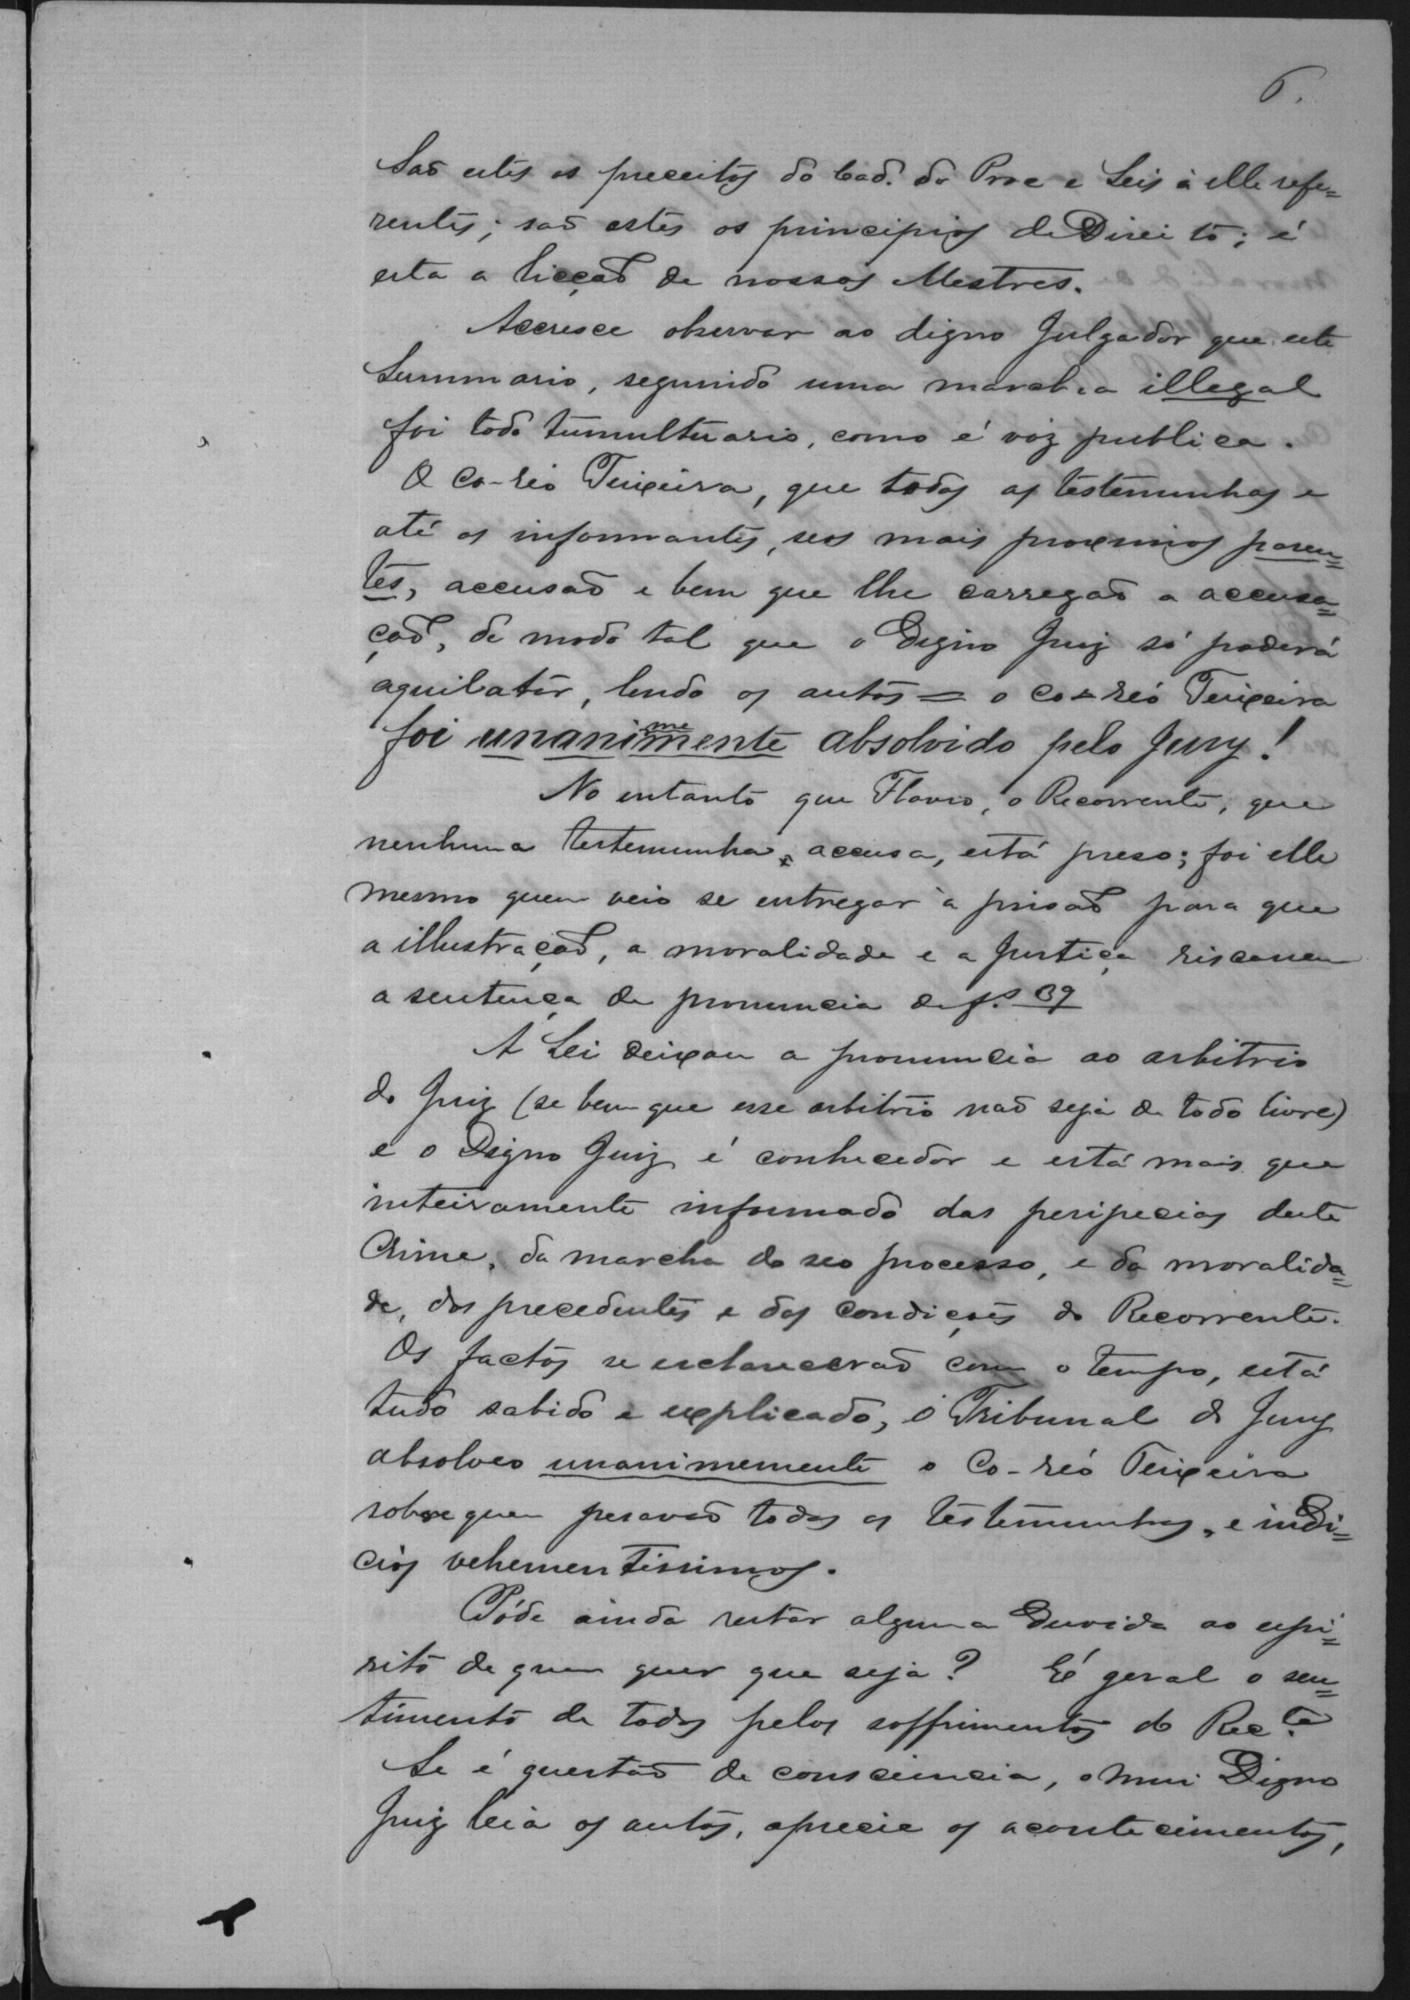 6.
São estes os preceitos do Cod. do Proc e Leis á elle refe=
rentes; saõ estes os principios de Direito; é
esta a licçaõ de nossos Mestres.
Accresce observar ao digno Julgador que este
Summario, seguindo uma marcha illegal
foi todo tumultuario, como é voz publica.
O Co-réo Teixeira, que todas as testemunhas e
até os informantes, seos mais proximos paren=
tes, accusaõ e bem que lhe carregaõ a accusa=
çaõ, de modo tal que o Digno Juiz só poderá
aquilatar, lendo os autos = o co-réo Teixeira
foi unanimemente absolvido pelo Jury!
No entanto que Flavio, o Recorrente, que
nenhuma testemunha accusa, está preso; foi elle
mesmo quem veio se entregar á prisaõ para que
a illustraçaõ, a moralidade e a Justiça risassem
a sentença de pronuncia de f.s 39
A Lei deixou a pronuncia ao arbitrio
do Juiz (se bem que esse arbitrio naõ seja de todo livre)
e o Digno Juiz é conhecedor e está mais que
inteiramente informado das peripecias deste
Crime, da marcha do seo processo, e da moralida=
de, dos precedentes e das condições do Recorrente.
Os factos se esclareceraõ com o tempo, está
tudo sabido e explicado, o Tribunal do Jury
absolveo unanimemente o Co-réo Teixeira
sobre quem pesavaõ todas as testemunhas, e indi=
cios vehementissimos.
Póde ainda restar alguma duvida ao espi=
rito de quem quer que seja? É geral o sen=
timento de todos pelos soffrimentos do Rec.te
Se é questaõ de consciencia, o mui Digno
Juiz leia os autos, aprecie os acontecimentos,